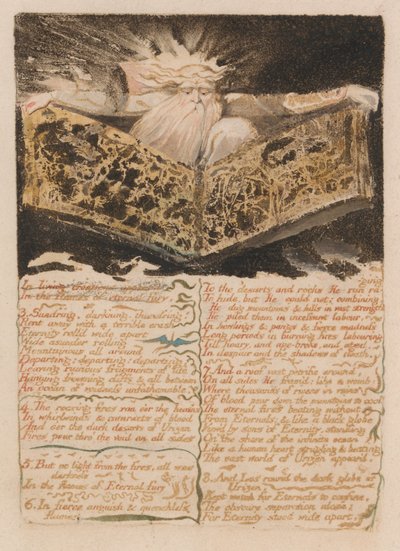 In living creations appear'd
In the flames of eternal fury.
3. Sund'ring, dark'ning, thund'ring!
Rent away with a terrible crash
Eternity roll'd wide apart
Wide asunder rolling
Mountainous all around
Departing; departing; departing:
Leaving ruinous fragments of life
Hanging frowning cliffs & all between
An ocean of voidness unfathomable.
4. The roaring fires ran o'er the heav'ns
In whirlwinds & cataracts of blood
And o'er the dark desarts of Urizen
Fires pour thro' the void on all sides
5. But no light from the fires. all was
darkness
In the flames of Eternal fury
6. In fierce anguish & quenchless
flames
ging
To the desarts and rocks He ran ra
To hide, but He could not: combining
He dug mountains & hills in vast strength
He piled them in incessant labour,
In howlings & pangs & fierce madness
Long periods in burning fires labouring
Till hoary, and age-broke, and aged,
In despair and the shadows of death.
7. And a roof, vast petrific around,
On all sides He fram'd: like a womb;
Where thousands of rivers in veins
Of blood pour down the mountains to cool
The eternal fires beating without
From Eternals; & like a black globe
View'd by sons of Eternity, standing
On the shore of the infinite ocean
Like a human heart strugling & beating
The vast world of Urizen appear'd.
8. And Los round the dark globe of
Urizen,
Kept watch for Eternals to confine,
The obscure separation alone;
For Eternity stood wide apart,